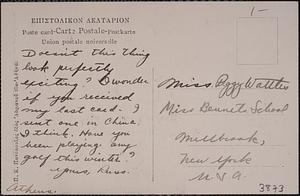 ΕΠΙΣΤΟΛΙΚΟΝ ΔΕΛΤΑΡΙΟΝ
Poste card-Carte Postale-Postkarte
Union postale universelle
1-
Doesn't this thing
look perfectly
exciting? I wonder
if you received
my last card. I
sent one in China,
I think. Have you
been playing any
golf this winter?
Yours, Russ.
Athens.
Miss Peggy Walters
Miss Bennett School
Millbrook,
New York
U.S.A.
3873